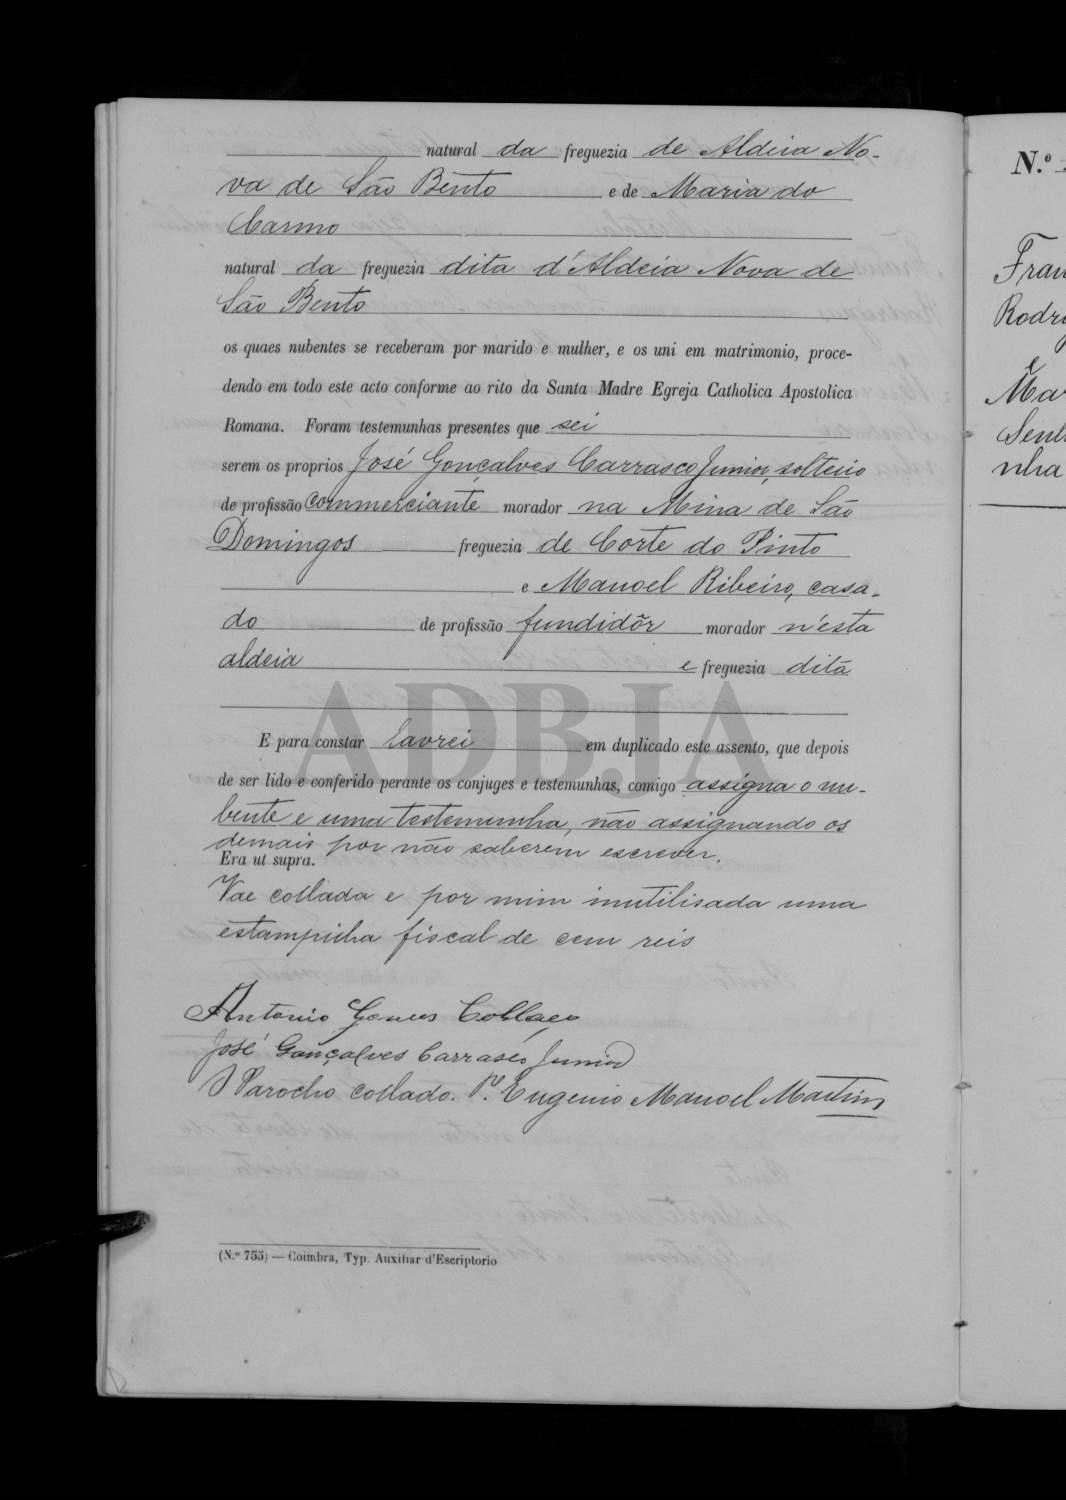 natural da freguezia de Aldeia No-
va de São Bento e de Maria do
Carmo
natural da freguezia dita d'Aldeia Nova de
São Bento
os quaes nubentes se receberam por marido e mulher, e os uni em matrimonio, proce-
dendo em todo este acto conforme ao rito da Santa Madre Egreja Catholica Apostolica
Romana. Foram testemunhas presentes que sei
serem os proprios José Gonçalves Carrasco Junior, solteiro
de profissão commerciante morador na Mina de São
Domingos freguezia de Corte do Pinto
e Manoel Ribeiro, casa-
do de profissão fundidôr morador n'esta
aldeia e freguezia dita
ADBJA
E para constar lavrei em duplicado este assento, que depois
de ser lido e conferido perante os conjuges e testemunhas, comigo assigna o nu-
bente e uma testemunha, não assignando os
demais por não saberem escrever.
Era ut supra.
Vae collada e por mim inutilisada uma
estampilha fiscal de cem reis
Antonio Gomes Collaço
José Gonçalves Carrasco Junior
O Parocho collado. Pe. Eugenio Manoel Martins
(N.º 755) — Coimbra, Typ. Auxiliar d'Escriptorio
N.º
Fran
Rodrig
e
Mar
Senh
nha